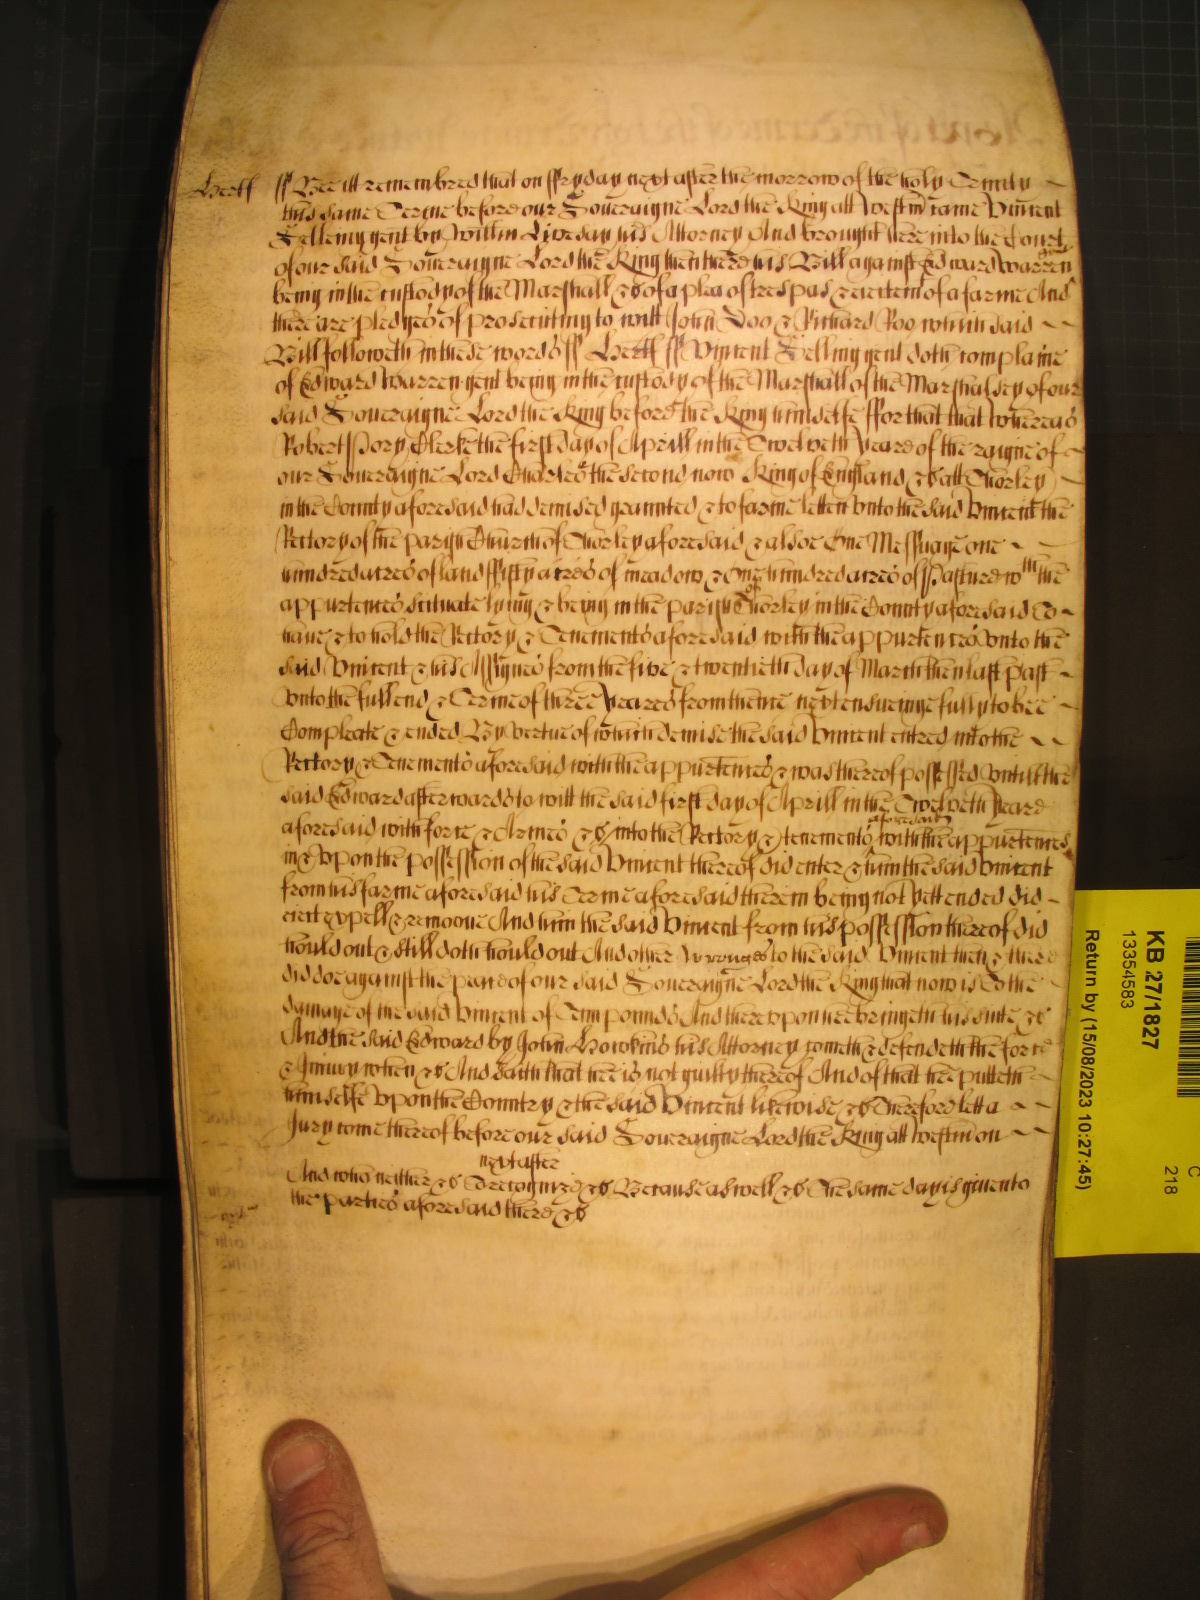 Hertf ss Bee itt remembred that on ffryday next after the morrow of the holy Trinity
this same Terme before our Soveraigne Lord the King att Westm came Vincent
Selling gent by Willm Livesay his Attorney And brought here into the Court
of our said Soveraigne Lord the King then there his Bill against Edward Warren gen
being in the custody of the Marshall &c of a plea of trespas & eiectem of a farme And
there are pledges of prosecuting to witt John Doo & Richard Roo which said
Bill followeth in these words ss Hertf ss Vincent Selling gent doth complaine
of Edward Warren gent being in the custody of the Marshall of the Marshalsey of our
said Soveraigne Lord the King before the King himselfe ffor that that whereas
Robert Pory Clerke the first day of Aprill in the Twelveth yeare of the raigne of
our Soveraigne Lord Charles the second now King of England &c att Thorley
in the County aforesaid had demised graunted & to farme letten vnto the said Vincent the
Rectory of the parish Church of Thorley aforesaid & alsoe One Messuage one
hundred acres of land ffifty acres of meadow & One hundred acres of Pasture wth the
appurtences scituate lying & being in the parish of Thorley in the County aforesaid To
haue & to hold the Rectory & Tenements aforesaid with the appurtences vnto the
said Vincent & his Assignes from the five & twentieth day of March then last past
vnto the full end & Terme of three yeares from thence next ensueinge fully to bee
Compleate & ended By vertue of which demise the said Vincent entred into the
Rectory & Tenements aforesaid with the appurtences & was thereof possessed vntill the
said Edward afterwards to witt the said first day of Aprill in the Twelveth yeare
aforesaid with force & Armes &c into the Rectory & tenements aforesaid with the appurtences
in & vpon the possession of the said Vincent thereof did enter & him the said Vincent
from his farme aforesaid his Terme aforesaid therein being not yett ended did
eiect expell & remooue And him the said Vincent from his possession thereof did
hould out & still doth hould out And other wronges to the said Vincent then & there
did doe against the peace of our said Soveraigne Lord the King that now is To the
damage of the said Vincent of Tenn pounds And therevpon hee bringeth his suite &c
And the said Edward by John Howkins his Attorney cometh & defendeth the force
& Iniury when &c And saith that hee is not guilty thereof And of that hee putteth
himselfe vpon the Country & the said Vincent likewise &c Therefore lett a
Jury come thereof before our said Soveraigne Lord the King att Westm on
next after
And who neither &c To recognize &c Because aswell &c The same day is given to
the parties aforesaid there &c
KB 27/1827
13354583
Return by (15/08/2023 10:27:45)
C
218